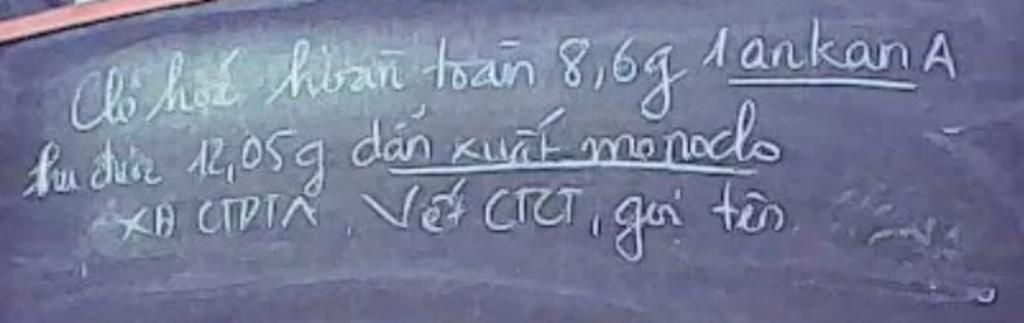 Clo hoá hoàn toàn 8,6g 1 ankan A
thu được 12,05g dẫn xuất monoclo
XĐ CTPTA. Viết CTCT, gọi tên.